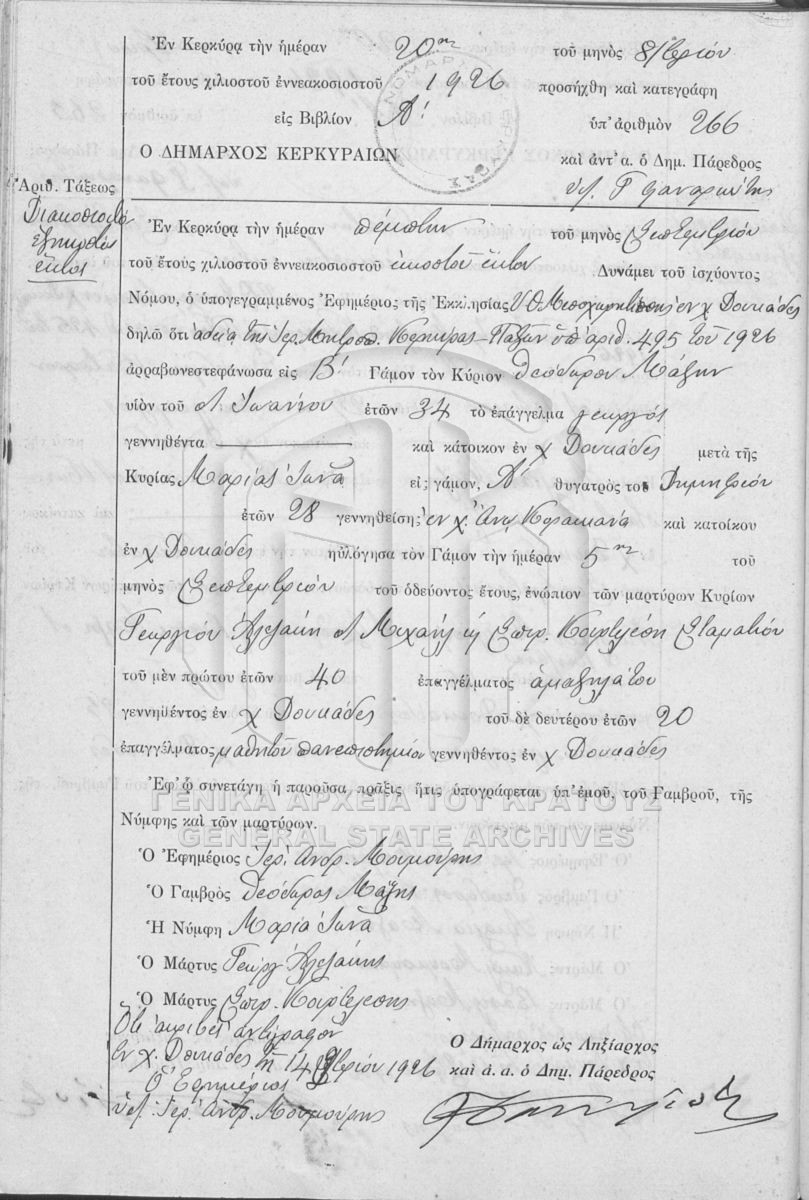 Ἐν Κερκύρᾳ τὴν ἡμέραν 20ην τοῦ μηνὸς 8/βρίου
τοῦ ἔτους χιλιοστοῦ ἐννεακοσιοστοῦ 1926 προσήχθη καὶ κατεγράφη
εἰς Βιβλίον Α' ὑπ' ἀριθμὸν 266
Ο ΔΗΜΑΡΧΟΣ ΚΕΡΚΥΡΑΙΩΝ καὶ ἀντ' α. ὁ Δημ. Πάρεδρος
Ἀριθ. Τάξεως
Διακοσιοστὸν
ἑξηκοστὸν
ἕκτον
Ἐν Κερκύρᾳ τὴν ἡμέραν πέμπτην τοῦ μηνὸς Σεπτεμβρίου
τοῦ ἔτους χιλιοστοῦ ἐννεακοσιοστοῦ εἰκοστοῦ ἕκτου Δυνάμει τοῦ ἰσχύοντος
Νόμου, ὁ ὑπογεγραμμένος Ἐφημέριος τῆς Ἐκκλησίας ἐν χ Δουκάδες
δηλῶ ὅτι ἀδείᾳ τῆς Ἱερ. Μητροπ. Κερκύρας - Παξῶν ὑπ' ἀριθ. 495 τοῦ 1926
ἀρραβωνεστεφάνωσα εἰς Β' Γάμον τὸν Κύριον Θεόδωρον Μάζην
υἱὸν τοῦ Ἰωάννου ἐτῶν 34 τὸ ἐπάγγελμα γεωργὸς
γεννηθέντα καὶ κάτοικον ἐν χ Δουκάδες μετὰ τῆς
Κυρίας Μαρίας Ἰωνᾶ εἰς γάμον, Α' θυγατρὸς τοῦ Δημητρίου
ἐτῶν 28 γεννηθείσης ἐν χ. Ἄνω Κορακιάνα καὶ κατοίκου
ἐν χ Δουκάδες ηὐλόγησα τὸν Γάμον τὴν ἡμέραν 5ην τοῦ
μηνὸς Σεπτεμβρίου τοῦ ὁδεύοντος ἔτους, ἐνώπιον τῶν μαρτύρων Κυρίων
Γεωργίου Ἀλεξάκη Μιχαὴλ Σπυρ. Κοιρτελέση Σταματίου
τοῦ μὲν πρώτου ἐτῶν 40 ἐπαγγέλματος ἁμαξηλάτου
γεννηθέντος ἐν χ Δουκάδες τοῦ δὲ δευτέρου ἐτῶν 20
ἐπαγγέλματος μαθητοῦ πανεπιστημίου γεννηθέντος ἐν χ Δουκάδες
Ἐφ' ᾧ συνετάγη ἡ παροῦσα πρᾶξις ἥτις ὑπογράφεται ὑπ' ἐμοῦ, τοῦ Γαμβροῦ, τῆς
Νύμφης καὶ τῶν μαρτύρων.
ΓΕΝΙΚΑ ΑΡΧΕΙΑ ΤΟΥ ΚΡΑΤΟΥΣ
GENERAL STATE ARCHIVES
Ὁ Ἐφημέριος Ἱερ. Ἀνδρ. Μουμούρης
Ὁ Γαμβρὸς Θεόδωρος Μάζης
Ἡ Νύμφη Μαρία Ἰωνᾶ
Ὁ Μάρτυς Γεώργ Ἀλεξάκης
Ὁ Μάρτυς Σπυρ. Κοιρτελέσης
Ὅτι ἀκριβὲς ἀντίγραφον
Ἐν χ. Δουκάδες τῇ 14 1926
Ὁ Ἐφημέριος
Ἱερ. Ἀνδρ. Μουμούρης
Ὁ Δήμαρχος ὡς Ληξίαρχος
καὶ ἀ. α. ὁ Δημ. Πάρεδρος